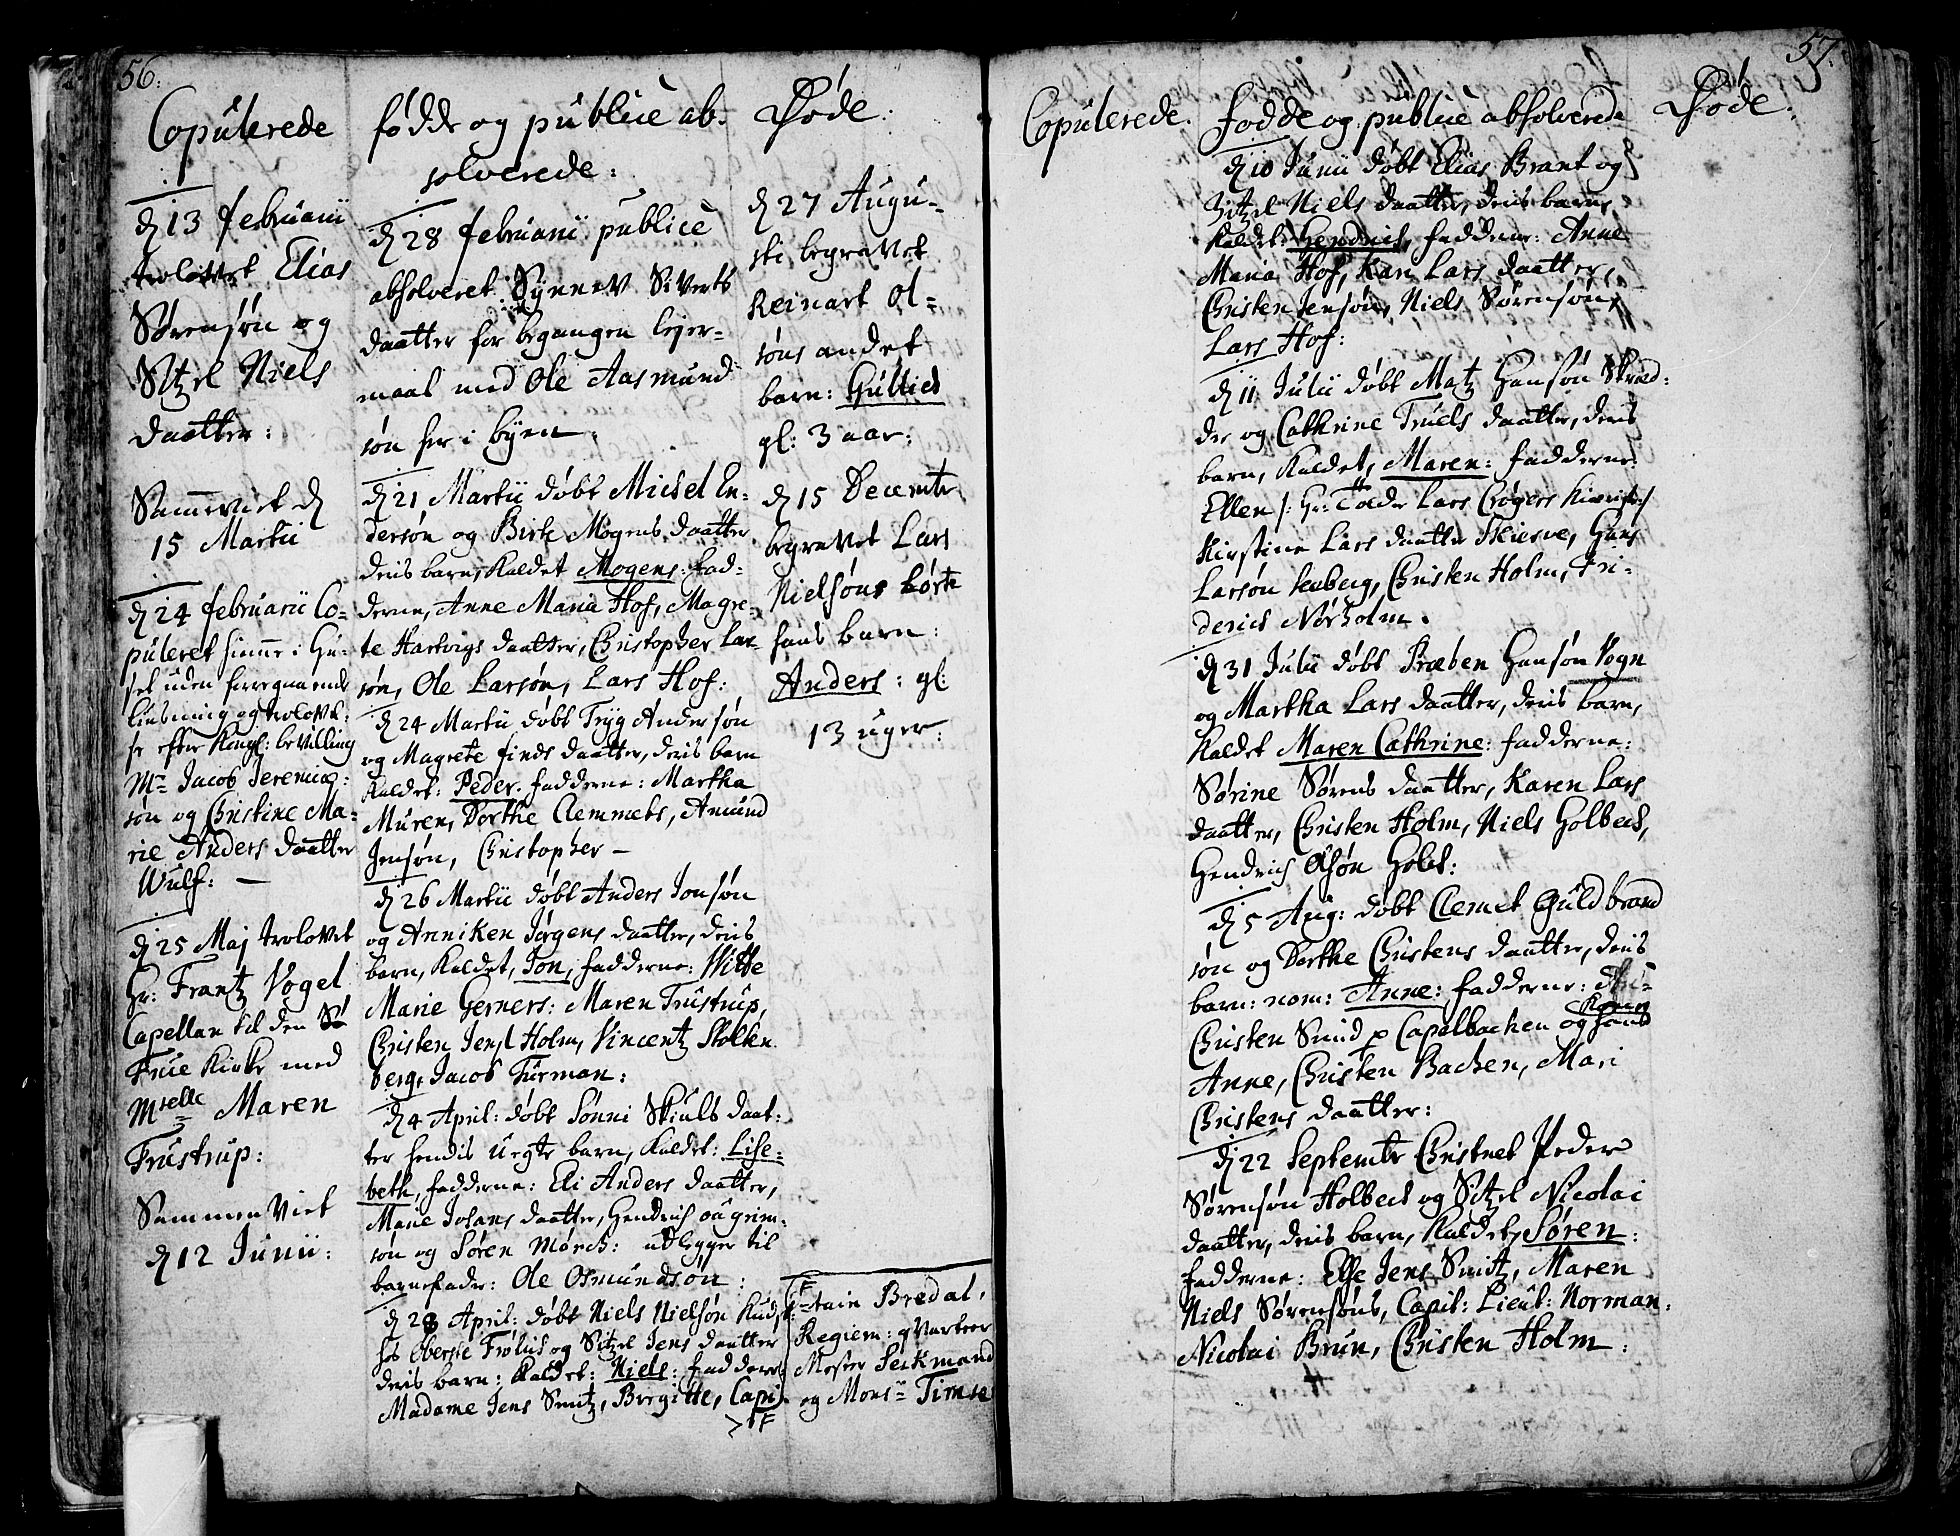 56.
Copulerede
d 13 Februarii
trolovet Elias
Sørensøn og
Sitzel Niels
daatter:
Sammeviet d
15 Martii
d 24 Februarii Co-
puleret hiemme i Hu-
set uden foregaaende
liusning og trolovel-
se efter Kongl: bevilling
Mr Jacob Jeremiæ-
søn og Christine Ma-
rie Anders daatter
Wulf: —
d 25 Maj trolovet
Hr: Frantz Vogel
Capellan til den
Frue Kirke med
Mselle Maren
Trustrup:
Sammen Viet
d 12 Junii:
fødde og publicè ab-
solverede:
d 28 Februarii publicè
absolveret Synnev Siverts
daatter for begangen lejer-
maal med Ole Aasmund
søn her i byen.
d 21 Martii døbt Michel En-
dersøn og Birte Mogens daatter
deris barn, kaldet Mogens: fad-
derne, Anne Maria Hof, Magre-
te Hartvigs daatter, Christopher Lar-
søn, Ole Larsøn, Lars Hof:
d 24 Martii døbt Tryg Andersøn
og Magrete Finds daatter, deris barn
kaldet: Peder. fadderne: Martha
Muren, Dorthe Clemmets, Amund
Jensøn, Christopher —
d 26 Martii døbt Anders Jonsøn
og Anniken Jørgens daatter, deris
barn, kaldet, Jon, fadderne: Witte
Marie Gerners: Maren Trustrup,
Christen Jens Holm, Vincentz Stolten
berg, Jacob Furman:
d 4 April: døbt Sønni Skiuls daat-
ter hendis uegte barn, kaldet: Lise-
beth, fadderne: Eli Anders daatter,
Marie Johans daatter, Hendrich
søn og Søren Mørch: udlegger til
barnefader: Ole Osmundsøn:
d 28 April: døbt Niels Nielsøn Kudsk
hos Oberste Frølich og Sitzel Jens daatter
deris barn: kaldet: Niels: fadderne
Madame Jens Smitz, Birgitte, Capi-
Døde:
d 27 Augu-
sti begravet
Reinart Ol-
søns andet
barn: Gullich
gl: 3 aar:
d 15 Decembr
begravet Lars
Nielsøns
hans barn:
Anders: gl:
13 uger:
tain Bredal,
Regiem: qvarteer
Mester Serkmand
og Monsr Timse
57.
Copulerede.
Fødde og publicè absolverede
d 10 Junii døbt Elias Brant og
Sitzel Niels daatter, deris barn,
kaldet: Hendrich, faddere: Anne
Maria Hof, Kari Lars daatter,
Christen Jensøn, Niels Sørensøn,
Lars Hof:
d 11 Julii døbt Matz Hansøn Skræd-
der og Cathrine Truels daatter, deris
barn, kaldet, Maren: fadderne:
Ellen Lars Crøgers
Kirstine Lars daatter Skierve, Hans
Larsøn Leeberg, Christen Holm, Fri-
derich Nørholm.
d 31 Julii døbt Præben Hansøn Vogn
og Martha Lars daatter, deris barn,
kaldet Maren Cathrine: fadderne:
Sørine Sørens daatter, Karen Lars
daatter, Christen Holm, Niels Holbech,
Hendrich Olsøn Holst:
d 5 Aug: døbt Clemet Guldbrand
søn og Dorthe Christens daatter, deris
barn: nom: Anne: fadderne:
Christen Smid p Capelbachen og hans Kone
Anne, Christen Bachen, Mari
Christens daatter:
d 22 Septembr Christnet Peder
Sørensøn Holbech og Sitzel Nicolai
daatter, deris barn, kaldet, Søren:
fadderne: Else Jens Smitz, Maren
Niels Sørensøns, Capit: Lieut: Norman:
Nicolai Brun, Christen Holm:
Døde: